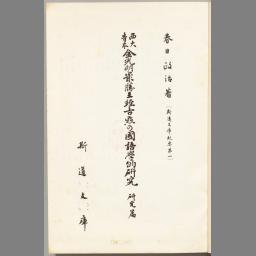 春日政治著（斯道文庫紀要第一）
西大寺本金光明最勝王経古点の國語學的研究 研究篇
斯道文庫